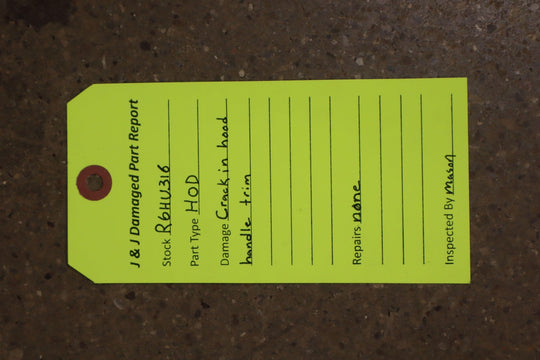 J & J Damaged Part Report
Stock R6HU316
Part Type HOD
Damage Crack in hood
handle trim
Repairs none
Inspected By Mason